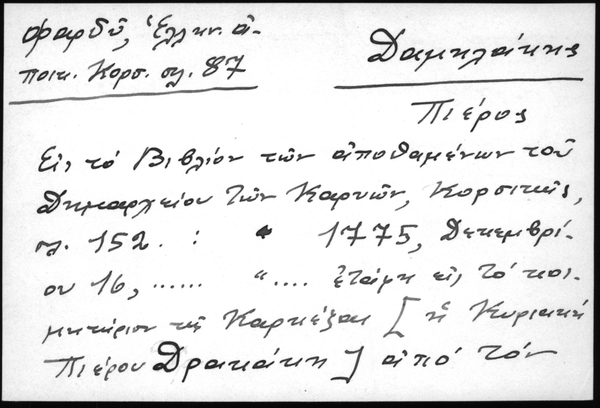 Φαρδῦ, Ἑλλην. ἀ-
ποικ. Κορσ. σλ. 87
Δαμηλάκης
Πιέρος
Εἰς τό Βιβλίον τῶν ἀποθαμένων τοῦ
Δημαρχείου τῶν Καρυῶν, Κορσικῆς,
σλ. 152. : " 1775, Δεκεμβρί-
ου 16, ...... ".... ἐτάφη εἰς τό κοι-
μητήριον τῆς Καργκέζας [ ἡ Κυριακή
Πιέρου Δρακάκη ] ἀπό τόν